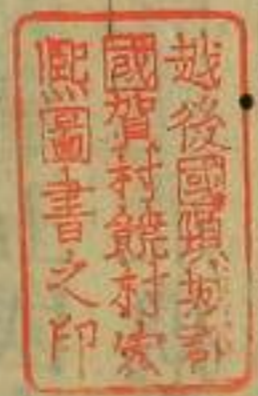 越後國頸城郡
國賀村饒村
熙圖書之印